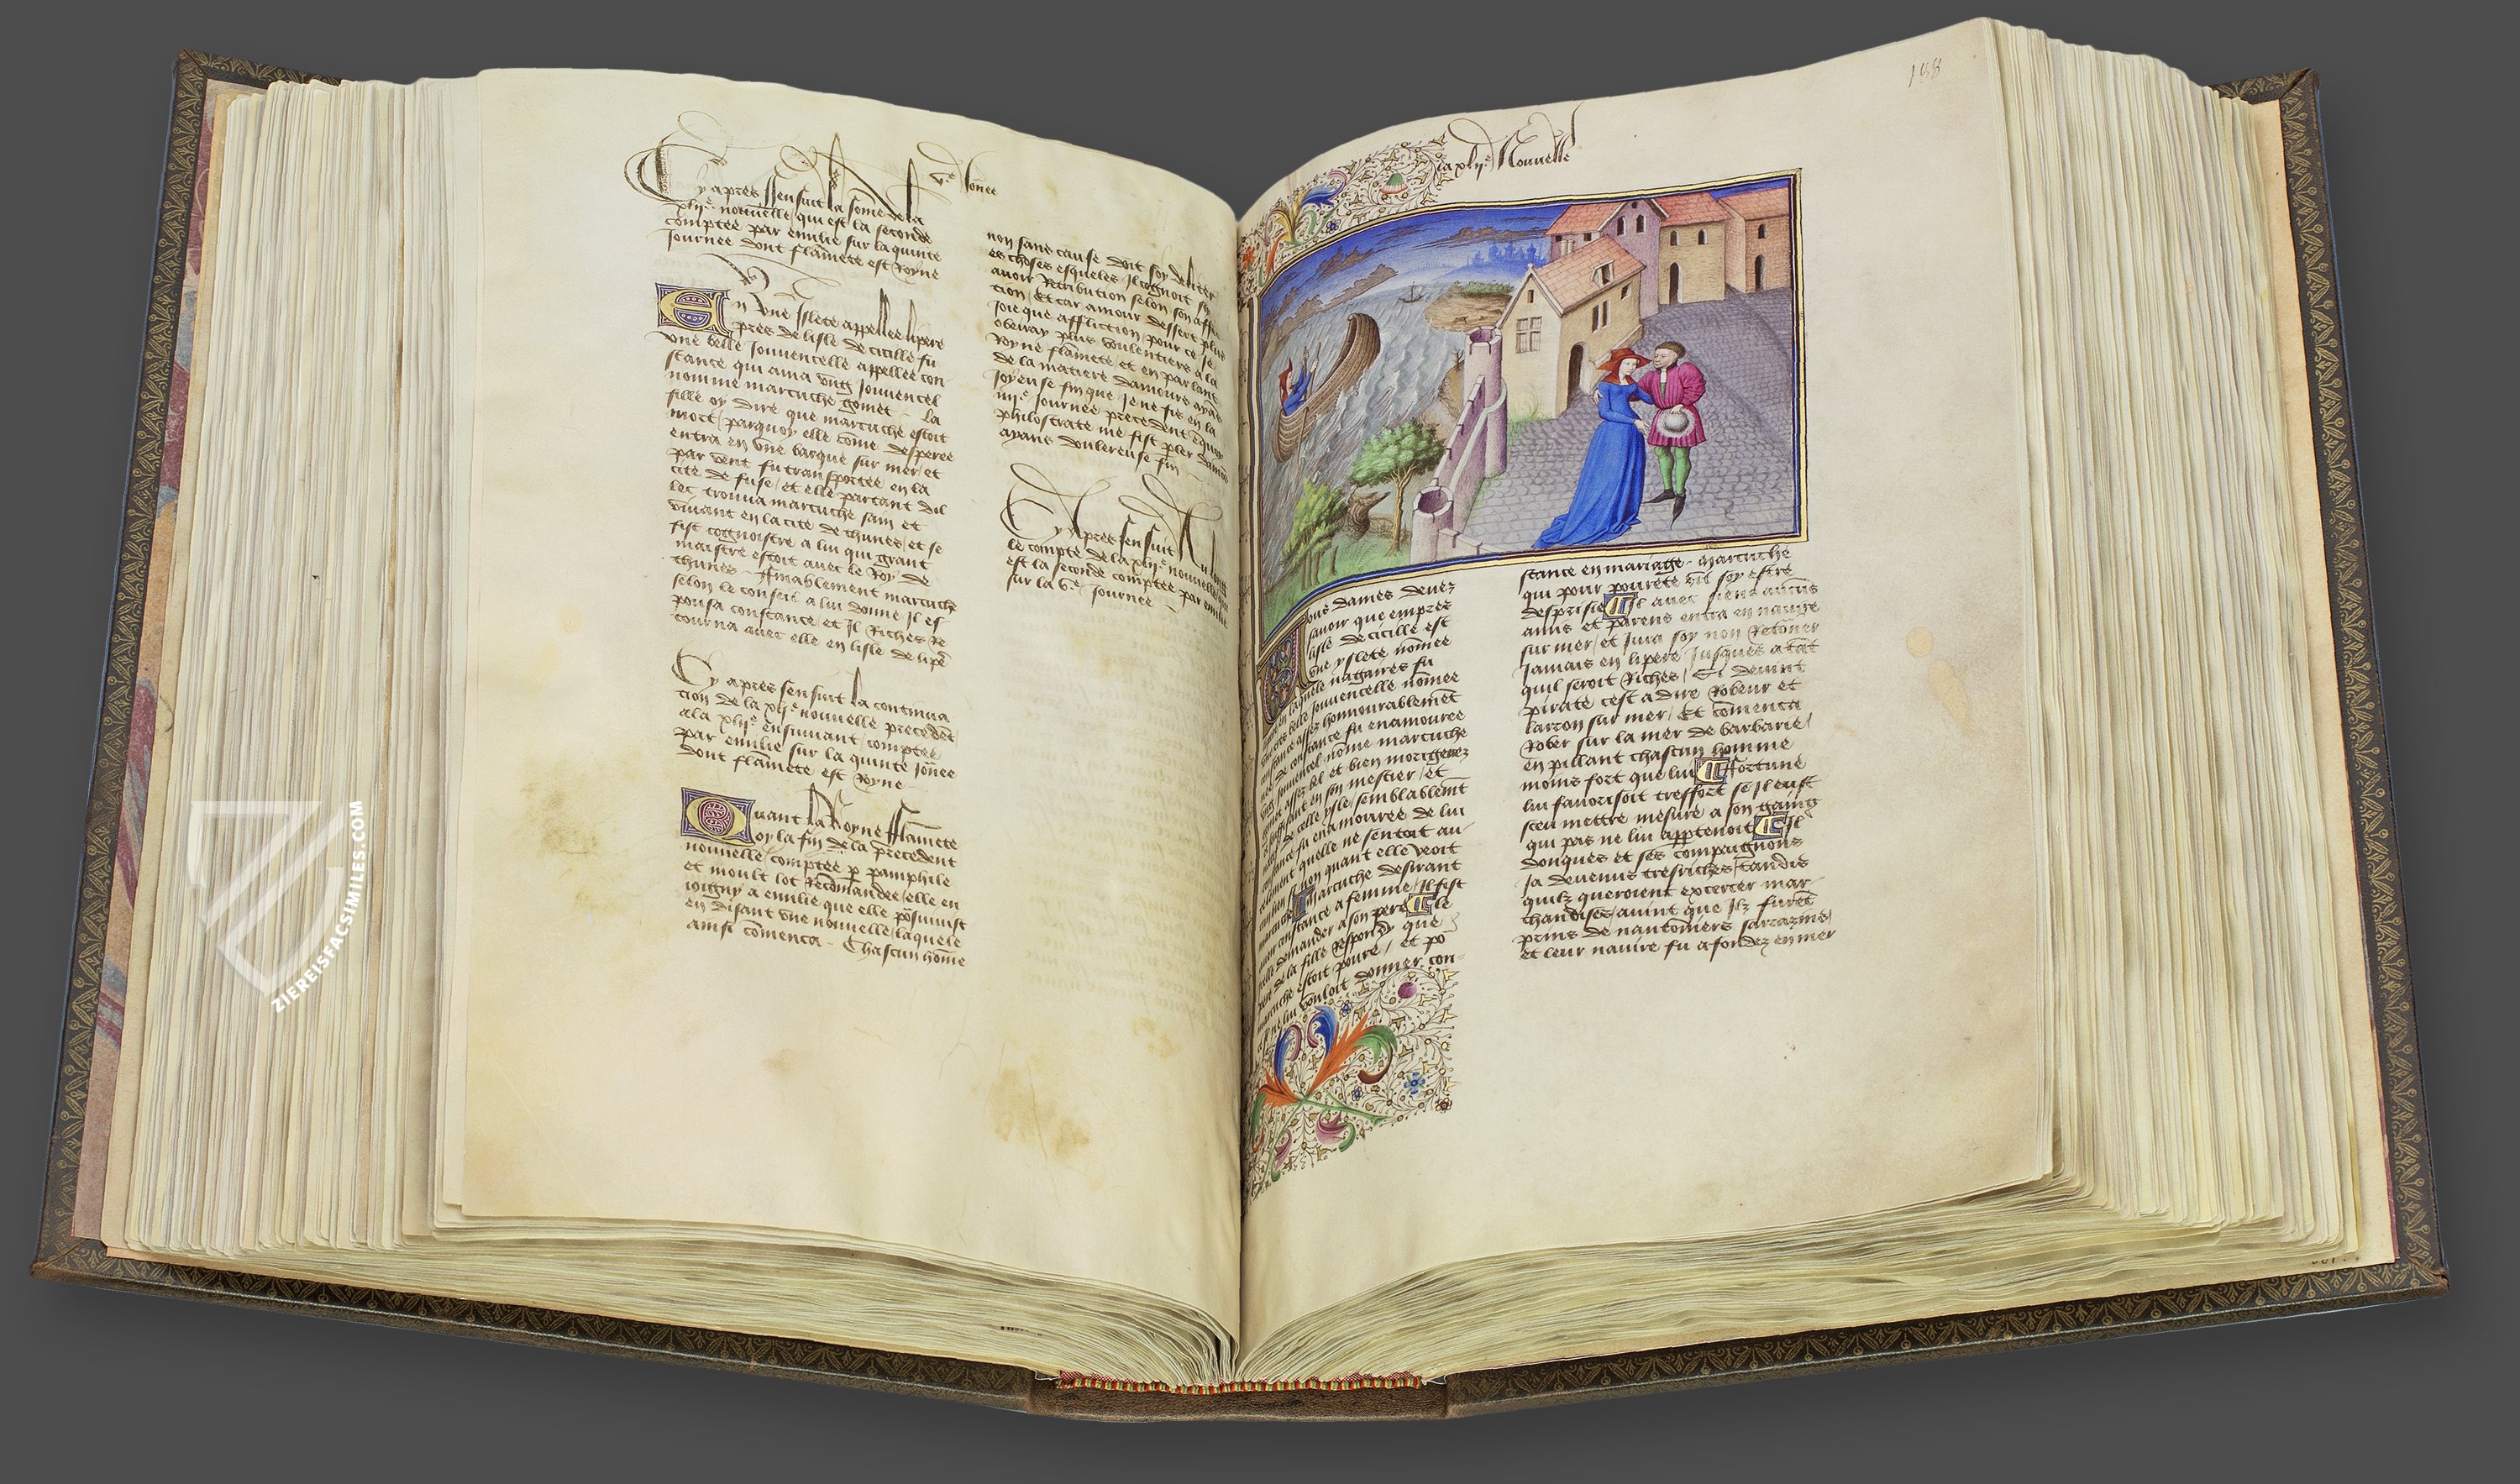 v.e Jo̅nee
Cy apres sensuit la som̅e de la
xlij.e nouuelle qui est la seconde
comptee par emilie sur la quinte
Journee dont flam̅ete est Royne
En vne Islete appellee lipere
pres de lisle de cicille fu
vne belle Jouuencelle appellee con
stance qui ama vng Jouuencel
nomme martuche gomet - la
fille oy dire que martuche estoit
mort / parquoy elle com̅e desperee
entra en vne barque sur mer / et
par vent fu transportee en la
cite de suse / et elle partant dil
lec trouua martuche sain et
viuant en la cite de thunes / et se
fist cognoistre a lui qui grant
maistre estoit auec le Roy de
thunes - Amablement martuche
selon le conseil a lui donne Il es
pousa constance / et Il Riches Re
tourna auec elle en lisle de lipe̅
Cy apres sensuit la continua
tion de la xlj.e nouuelle precede̅t
a la xlij.e ensuiuant / comptee
par emilie sur la quinte Jo̅nee
dont flam̅ete est Royne
Quant la Royne flam̅ete
oy la fin de la precedent
nouuelle / comptee p̱ pamphile
et moult lot Recom̅andee / elle en
ioigny a emilie que elle po̅suiuist
en disant vne nouuelle / laquele
ainsi com̅enca - Chascun hom̅e
non sans cause doit soy deliter
es choses esqueles Il cognoit
auoir Retribution selon son
tion / Et car amour dessert plus
Joie que affliction / pour ce Je
obeiray plus voulentiers a la
Royne flam̅ete / et en parlant
de la matiere damours ayans
Joyeuse fin que Je ne fis en la
iiij.e Journee precedent
philostrate me fist p̱ler
ayans douloureuse fin
Cy Apres sensuit Au long
le compte de la xlij.e nouuelle
est la seconde comptee par emilie
sur la v.e Journee
188
la xlij.e Nouuelle
Vous dames deuez
sauoir que empres
lisle de cicille est
vne yslete nom̅ee
nagaires fu
Jouuencelle nom̅ee
assez honnourablem̅e̅t
fu enamouree
Jouuencel nom̅e martuche
assez bel et bien
en son mestier / et
de celle ysle / semblablem̅t
fu enamouree de lui
quelle ne sentoit au-
non quant elle veoit
martuche desirant
auoir constance a femme / Il fist
celle demander a son pere le
pere de la fille Respondy que
martuche estoit poure / et po
ce Il ne lui vouloit donner con-
stance en mariage - Martuche
qui pour pourete vit soy estre
desprisie Il auec siens aucuns
amis et parens entra en nauire
sur mer / et Jura soy non Reto̅ner
Jamais en lipere / Jusques a ta̅t
quil seroit Riches / Et deuint
pirate cest a dire Robeur et
larron sur mer / Et com̅enca
Rober sur la mer de barbarie /
en pillant chascun homme
moins fort que lui Fortune
lui fauorisoit tresfort se Il eust
sceu mettre mesure a son gaing
qui pas ne lui app̱tenoit Il
donques et ses compaignons
Ja deuenus tresriches / tandis
quilz queroient exercer mar-
chandises / auint que Ilz furent
prins de nautonniers sarrazins /
et leur nauire fu afondez en mer
ZIEREISFACSIMILES.COM